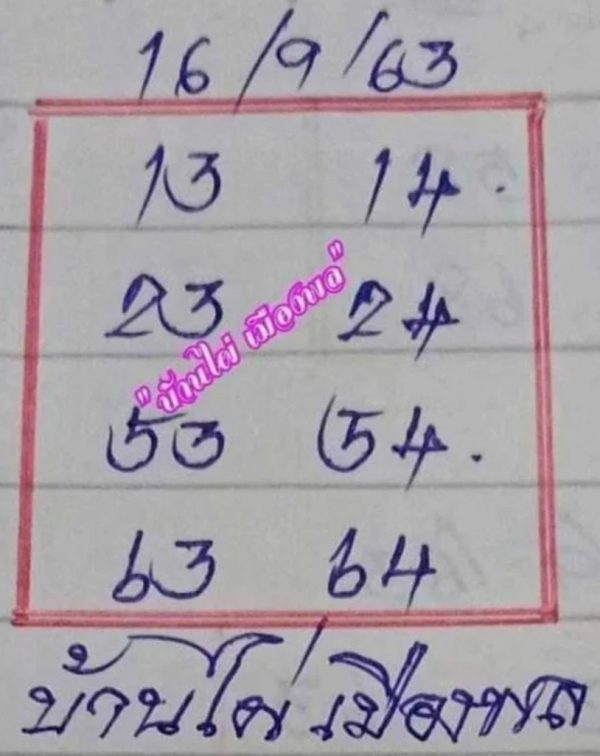 16/9/63
13 14.
23 24
"บ้านไผ่ เมืองพล"
53 54.
63 64
บ้านไผ่ เมืองพล